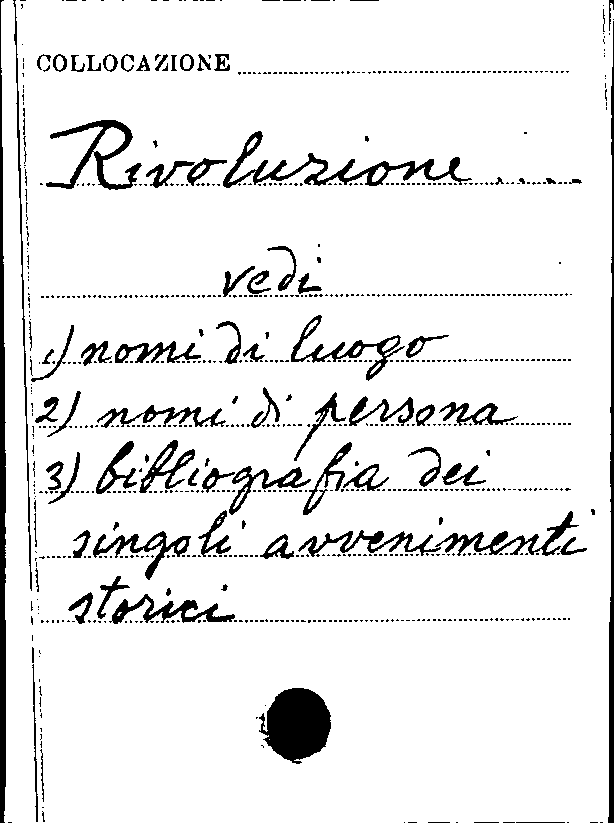 COLLOCAZIONE
Rivoluzione ....
vedi
1) nomi di luogo
2) nomi di persona
3) bibliografia dei
singoli avvenimenti
storici